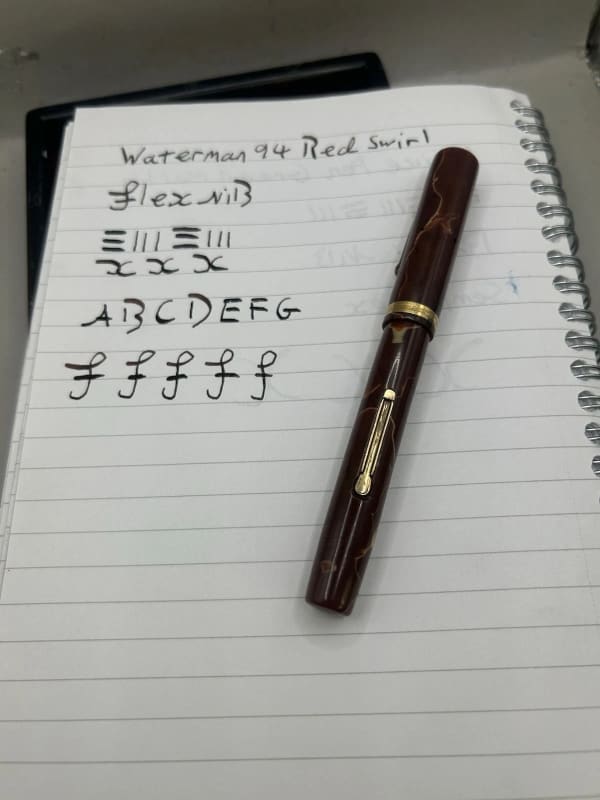 Waterman 94 Red Swirl
flex NiB
x x x
A B C D E F G
f f f f f